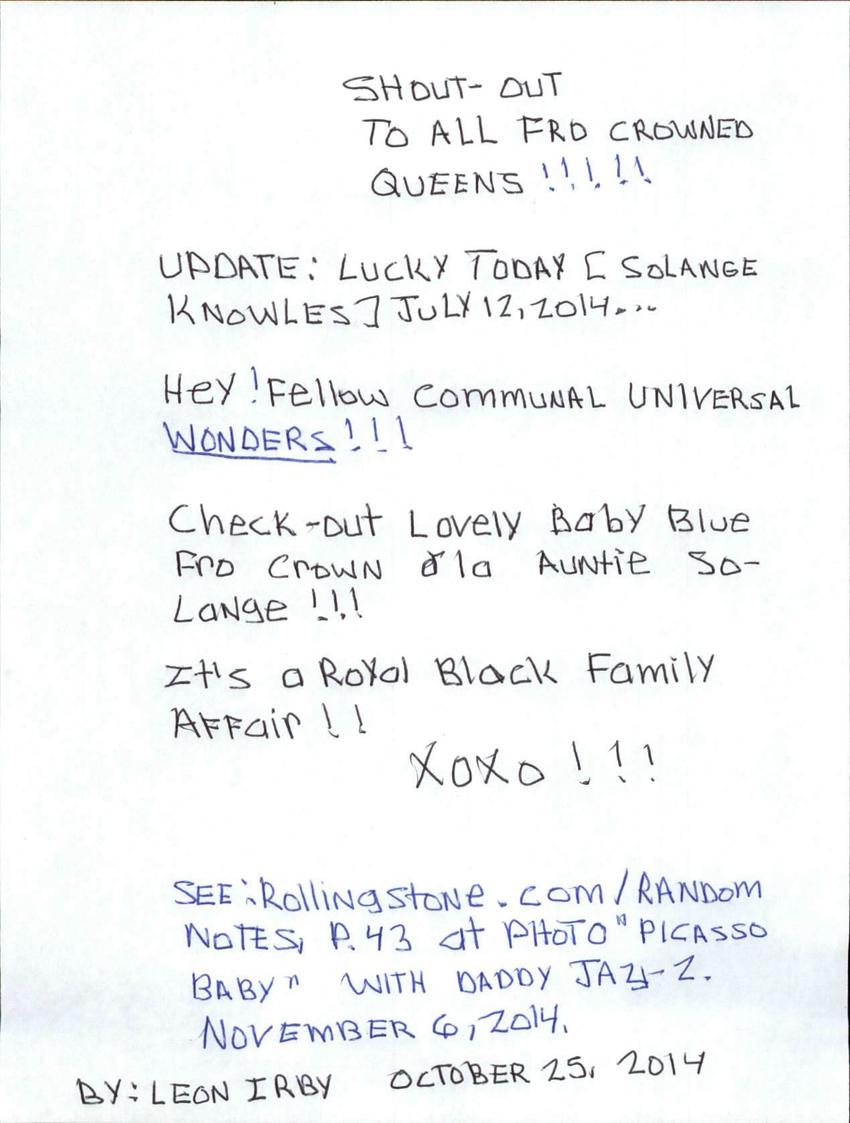 SHOUT- OUT
TO ALL FRO CROWNED
QUEENS !!!!!
UPDATE: LUCKY TODAY [ SOLANGE
KNOWLES] JULY 12, 2014...
HeY ! Fellow COMMUNAL UNIVERSAL
WONDERS!!!
Check-out Lovely Baby Blue
Fro CROWN a'la AUNtie So-
LANge !!!
It's a RoYal Black Family
AFFair !!
XOXO !!!
SEE: RollingStoNe.com/RANDOM
NOTES, P.43 at PHOTO "PICASSO
BABY" WITH DADDY JAY-Z.
NOVEMBER 6, 2014.
BY: LEON IRBY OCTOBER 25, 2014